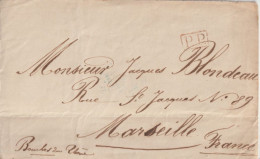 PD
Monsieur Jacques Blondeau
Rue St Jacques No 89
Marseille
Bouches du Rhône France